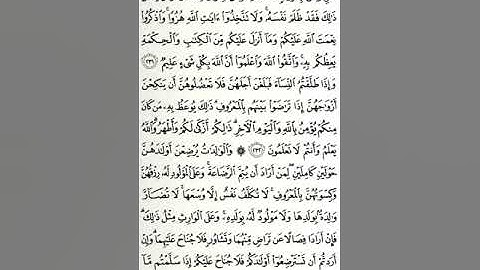 ذَٰلِكَ فَقَدْ ظَلَمَ نَفْسَهُۥ ۚ وَلَا تَتَّخِذُوٓا۟ ءَايَٰتِ ٱللَّهِ هُزُوًا ۚ وَٱذْكُرُوا۟
نِعْمَتَ ٱللَّهِ عَلَيْكُمْ وَمَآ أَنزَلَ عَلَيْكُم مِّنَ ٱلْكِتَٰبِ وَٱلْحِكْمَةِ
يَعِظُكُم بِهِۦ ۚ وَٱتَّقُوا۟ ٱللَّهَ وَٱعْلَمُوٓا۟ أَنَّ ٱللَّهَ بِكُلِّ شَىْءٍ عَلِيمٌ ﴿٢٣١﴾
وَإِذَا طَلَّقْتُمُ ٱلنِّسَآءَ فَبَلَغْنَ أَجَلَهُنَّ فَلَا تَعْضُلُوهُنَّ أَن يَنكِحْنَ
أَزْوَٰجَهُنَّ إِذَا تَرَٰضَوْا۟ بَيْنَهُم بِٱلْمَعْرُوفِ ۗ ذَٰلِكَ يُوعَظُ بِهِۦ مَن كَانَ
مِنكُمْ يُؤْمِنُ بِٱللَّهِ وَٱلْيَوْمِ ٱلْءَاخِرِ ۗ ذَٰلِكُمْ أَزْكَىٰ لَكُمْ وَأَطْهَرُ ۗ وَٱللَّهُ
يَعْلَمُ وَأَنتُمْ لَا تَعْلَمُونَ ﴿٢٣٢﴾ ۞ وَٱلْوَٰلِدَٰتُ يُرْضِعْنَ أَوْلَٰدَهُنَّ
حَوْلَيْنِ كَامِلَيْنِ ۖ لِمَنْ أَرَادَ أَن يُتِمَّ ٱلرَّضَاعَةَ ۚ وَعَلَى ٱلْمَوْلُودِ لَهُۥ رِزْقُهُنَّ
وَكِسْوَتُهُنَّ بِٱلْمَعْرُوفِ ۚ لَا تُكَلَّفُ نَفْسٌ إِلَّا وُسْعَهَا ۚ لَا تُضَآرَّ
وَٰلِدَةٌۢ بِوَلَدِهَا وَلَا مَوْلُودٌ لَّهُۥ بِوَلَدِهِۦ ۚ وَعَلَى ٱلْوَارِثِ مِثْلُ ذَٰلِكَ ۗ
فَإِنْ أَرَادَا فِصَالًا عَن تَرَاضٍ مِّنْهُمَا وَتَشَاوُرٍ فَلَا جُنَاحَ عَلَيْهِمَا ۗ وَإِنْ
أَرَدتُّمْ أَن تَسْتَرْضِعُوٓا۟ أَوْلَٰدَكُمْ فَلَا جُنَاحَ عَلَيْكُمْ إِذَا سَلَّمْتُم مَّآ